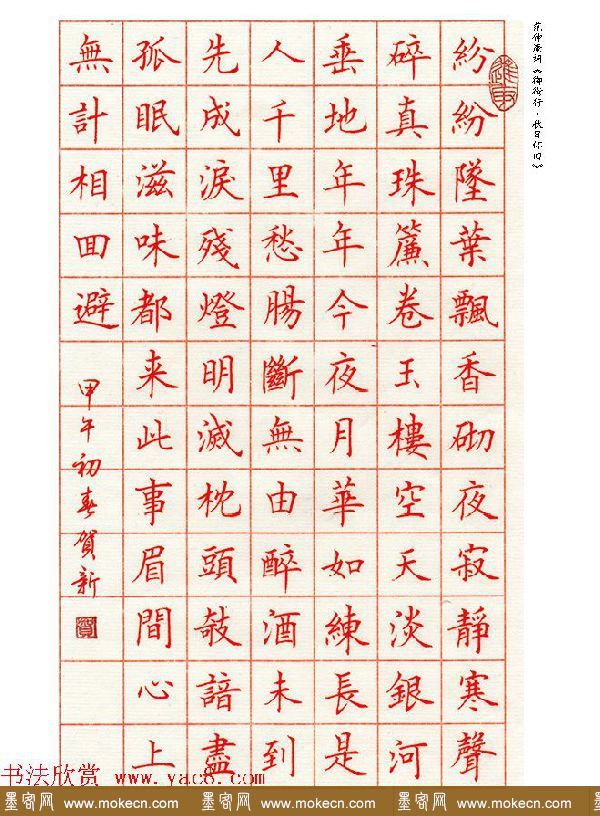 范仲淹词《御街行·秋日怀旧》
紛紛墜葉飄香砌夜寂靜寒聲
碎真珠簾卷玉樓空天淡銀河
垂地年年今夜月華如練長是
人千里愁腸斷無由醉酒未到
先成淚殘燈明滅枕頭敧諳盡
孤眠滋味都来此事眉間心上
無計相囬避
甲午初春賀新
书法欣赏 www.yac8.com
墨客网 www.mokecn.com 墨客网 www.mokecn.com 墨客网 www.mokecn.com